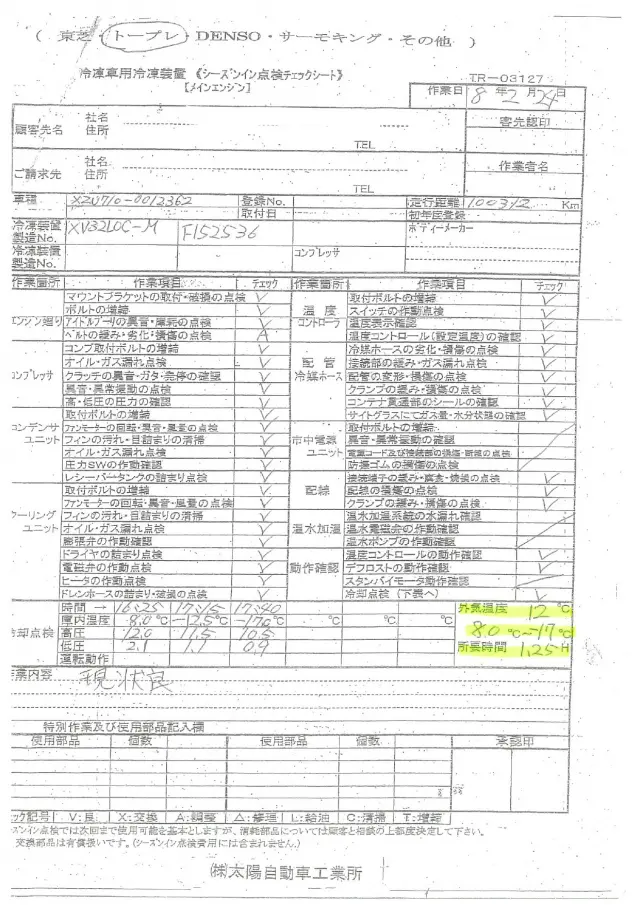 ( 東芝・トープレ・DENSO・サーモキング・その他 )
冷凍車用冷凍装置 《シーズンイン点検チェックシート》 TR-03127
[メインエンジン] 作業日 8年2月24日
顧客先名 社名 住所 TEL 客先認印
ご請求先 社名 住所 TEL 作業者名
車種 XZU710-0012362 登録No. 走行距離 100312 Km
取付日 初年度登録
冷凍装置製造No. XV32LOC-M F152536 ボディーメーカー
冷凍装置製造No. コンプレッサ
作業箇所 作業項目 チェック 作業箇所 作業項目 チェック
マウントブラケットの取付・破損の点検 V 取付ボルトの増締 V
ボルトの増締 V 温度 スイッチの作動点検 V
エンジン廻り アイドルプーリの異音・摩耗の点検 V コントローラ 温度表示確認 V
ベルトの緩み・劣化・損傷の点検 A 温度コントロール(設定温度)の確認 V
コンプ取付ボルトの増締 V 冷媒ホースの劣化・損傷の点検 V
オイル・ガス漏れ点検 V 配管 接続部の緩み・ガス漏れ点検 V
コンプレッサ クラッチの異音・ガタ・発停の確認 V 冷媒ホース 配管の変形・損傷の点検 V
異音・異常振動の点検 V クランプの緩み・損傷の点検 V
高・低圧の圧力の確認 V コンテナ貫通部のシールの確認 V
取付ボルトの増締 V サイトグラスにてガス量・水分状態の確認 V
コンデンサ ファンモーターの回転・異音・風量の点検 V 取付ボルトの増締
ユニット フィンの汚れ・目詰まりの清掃 V 市中電源 異音・異常振動の確認
オイル・ガス漏れ点検 V ユニット 電源コード及び接続部の損傷・断線の点検
圧力SWの作動確認 V 防振ゴムの損傷の点検
レシーバータンクの詰まり点検 V 接続端子の緩み・腐食・焼損の点検 V
取付ボルトの増締 V 配線 配線の損傷の点検 V
ファンモーターの回転・異音・風量の点検 V クランプの緩み・損傷の点検 V
クーリング フィンの汚れ・目詰まりの清掃 V 温水加温系統の水漏れ確認
ユニット オイル・ガス漏れ点検 V 温水加温 温水電磁弁の作動確認
膨張弁の作動確認 V 温水ポンプの作動確認
ドライヤの詰まり点検 V 温度コントロールの動作確認 V
電磁弁の作動点検 V 動作確認 デフロストの動作確認 V
ヒータの作動点検 V スタンバイモータ動作確認
ドレンホースの詰まり・破損の点検 V 冷却点検 (下表へ) V
時間 → 16:25 17:15 17:40 外気温度 12 ℃
庫内温度 8.0℃ -12.5℃ -17.0℃ ℃ ℃ ℃ 8.0 ℃~-17℃
冷却点検 高圧 12.0 11.5 10.5 所要時間 1.25H
低圧 2.1 1.1 0.9
運転動作
作業内容 現状良
特別作業及び使用部品記入欄
使用部品 個数 使用部品 個数 承認印
チェック記号 V:良 X:交換 A:調整 △:修理 L:給油 C:清掃 T:増締
シーズンイン点検では次回まで使用可能を基本としますが、消耗部品については顧客と相談の上都度決定して下さい。
交換部品は有償扱いです。(シーズンイン点検費用には含まれません。)
㈱太陽自動車工業所